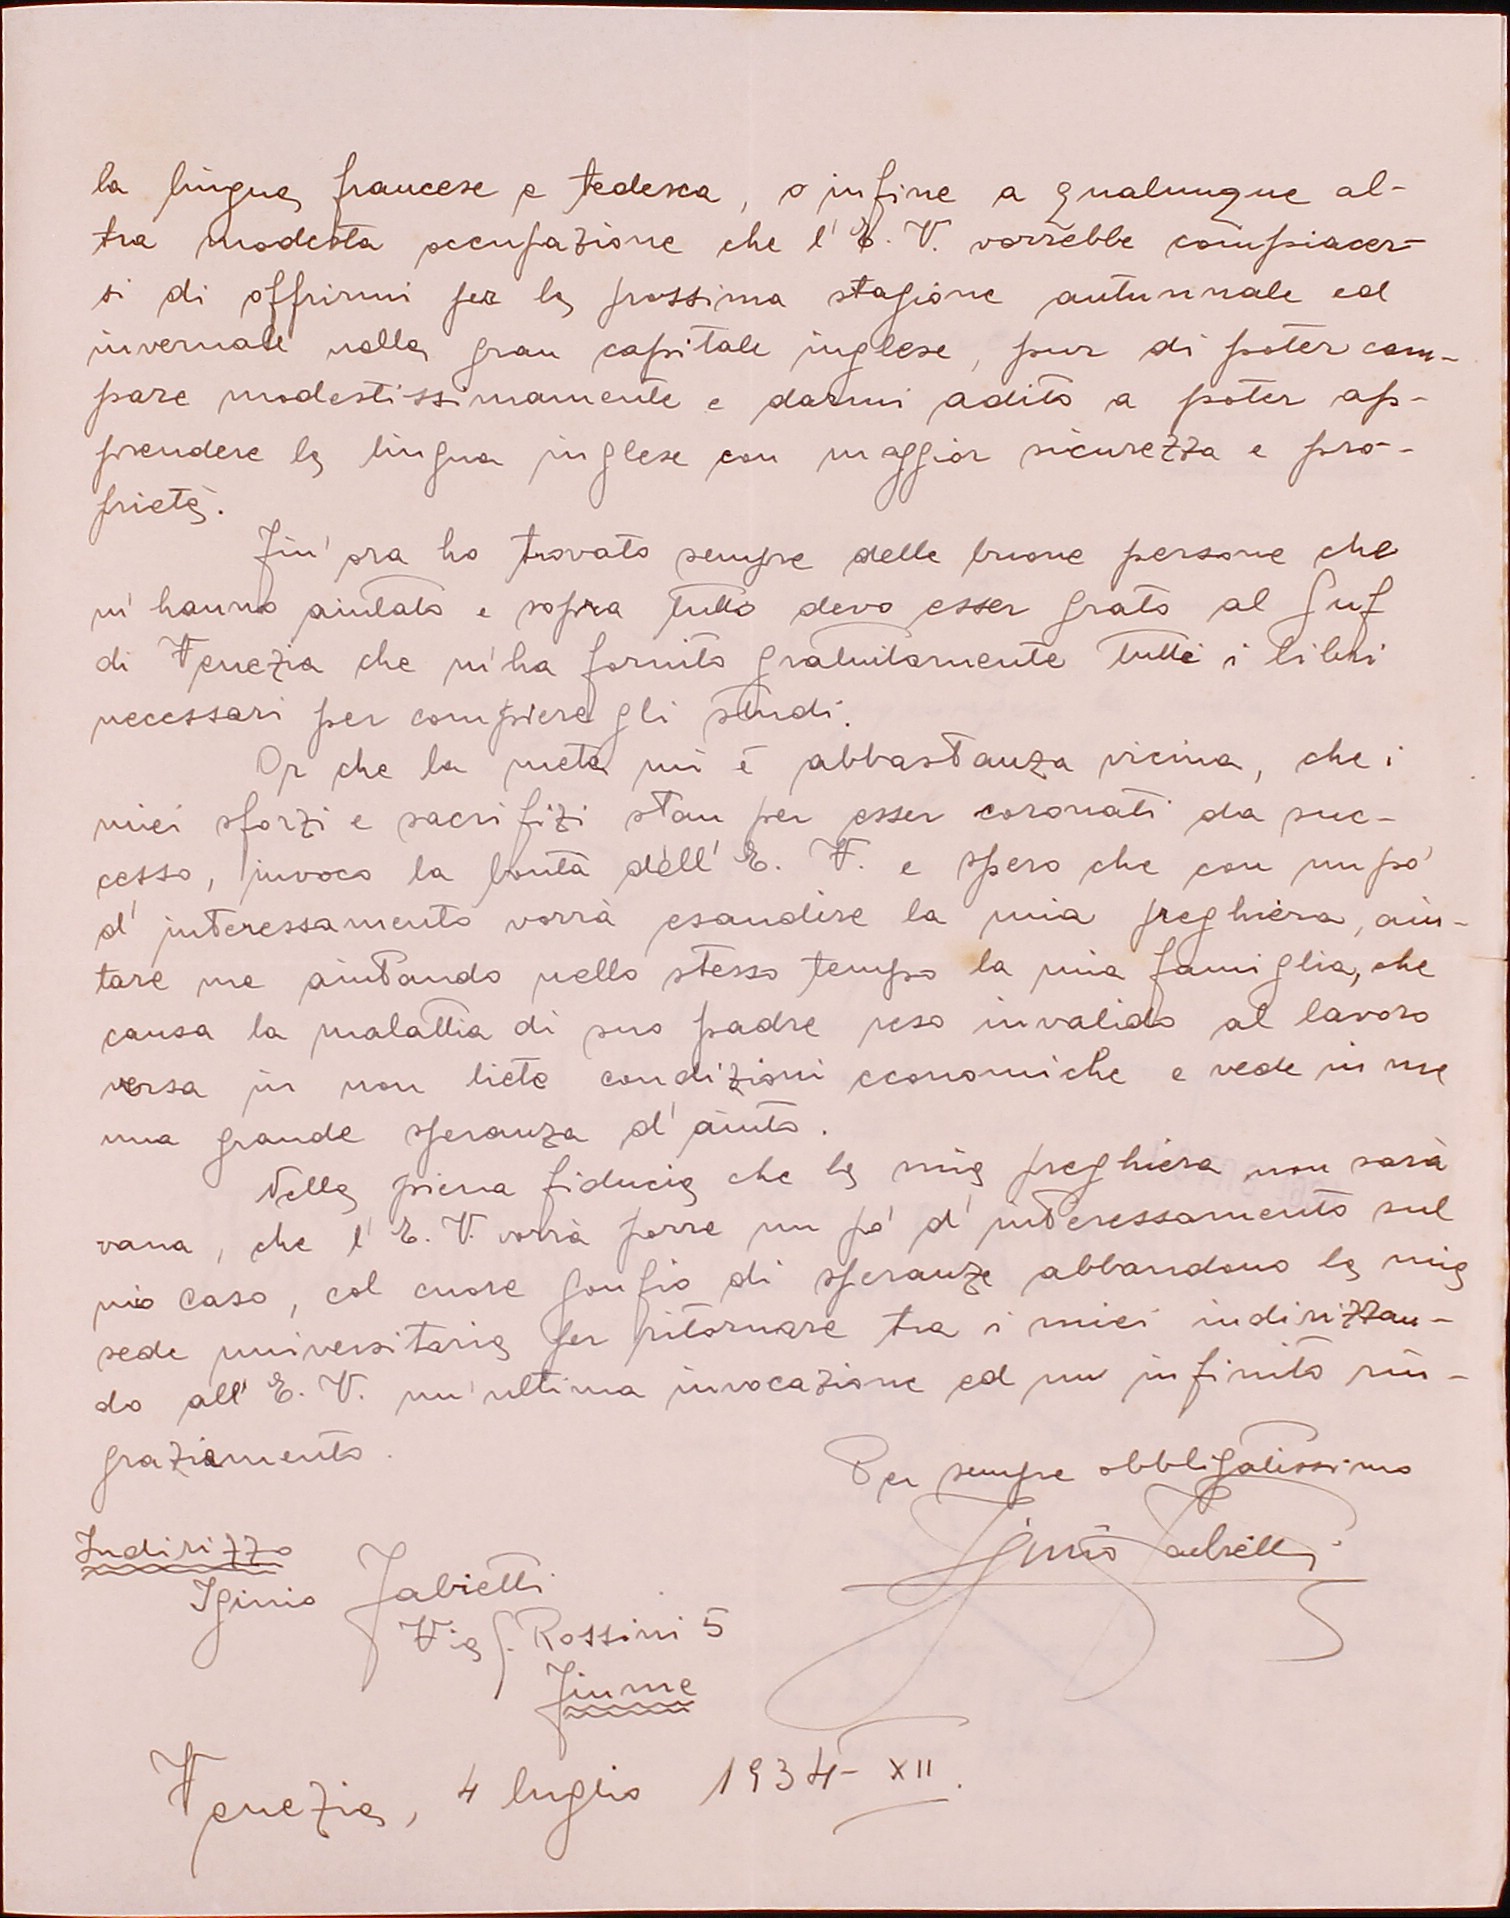 la lingua francese e tedesca, o infine a qualunque al-
tra modesta occupazione che l'E. V. vorrebbe compiacer-
si di offrirmi per la prossima stagione autunnale ed
invernale nella gran capitale inglese, pur di poter cam-
pare modestissimamente e darmi adito a poter ap-
prendere la lingua inglese con maggior sicurezza e pro-
prietà.
Fin'ora ho trovato sempre delle buone persone che
m'hanno aiutato e sopra tutto devo esser grato al Guf
di Venezia che m'ha fornito gratuitamente tutti i libri
necessari per compiere gli studi.
Or che la meta mi è abbastanza vicina, che i
miei sforzi e sacrifizi stan per esser coronati da suc-
cesso, invoco la bontà dell'E. V. e spero che con un pò
d'interessamento vorrà esaudire la mia preghiera, aiu-
tare me aiutando nello stesso tempo la mia famiglia, che
causa la malattia di suo padre reso invalido al lavoro
versa in non liete condizioni economiche e vede in me
una grande speranza d'aiuto.
Nella piena fiducia che la mia preghiera non sarà
vana, che l'E. V. vorrà porre un pò d'interessamento sul
mio caso, col cuore gonfio di speranze abbandono la mia
sede universitaria per ritornare tra i miei indirizzan-
do all'E. V. un'ultima invocazione ed un infinito rin-
graziamento.
Per sempre obbligatissimo
Iginio Jabietti
Indirizzo
Iginio Jabietti
Via G. Rossini 5
Fiume
Venezia, 4 luglio 1934-XII.